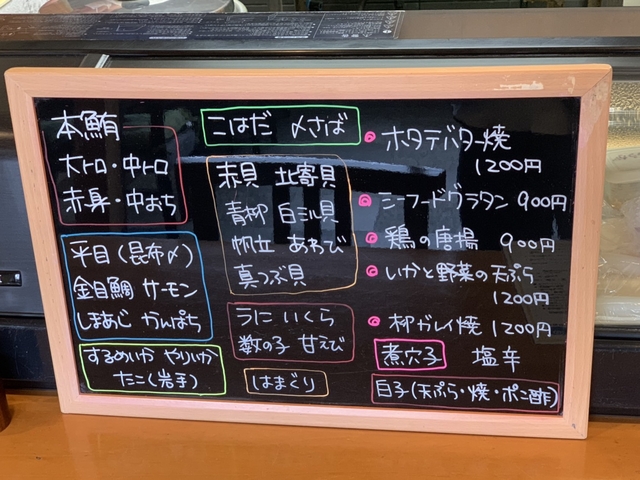 本鮪
大トロ・中トロ
赤身・中おち
平目(昆布〆)
金目鯛 サーモン
しまあじ かんぱち
するめいか やりいか
たこ(岩手)
こはだ 〆さば
赤貝 北寄貝
青柳 白ミル貝
帆立 あわび
真つぶ貝
うに いくら
数の子 甘えび
はまぐり
ホタテバター焼
1200円
シーフードグラタン 900円
鶏の唐揚 900円
いかと野菜の天ぷら
1200円
柳ガレイ焼 1200円
煮穴子 塩辛
白子(天ぷら・焼・ポン酢)